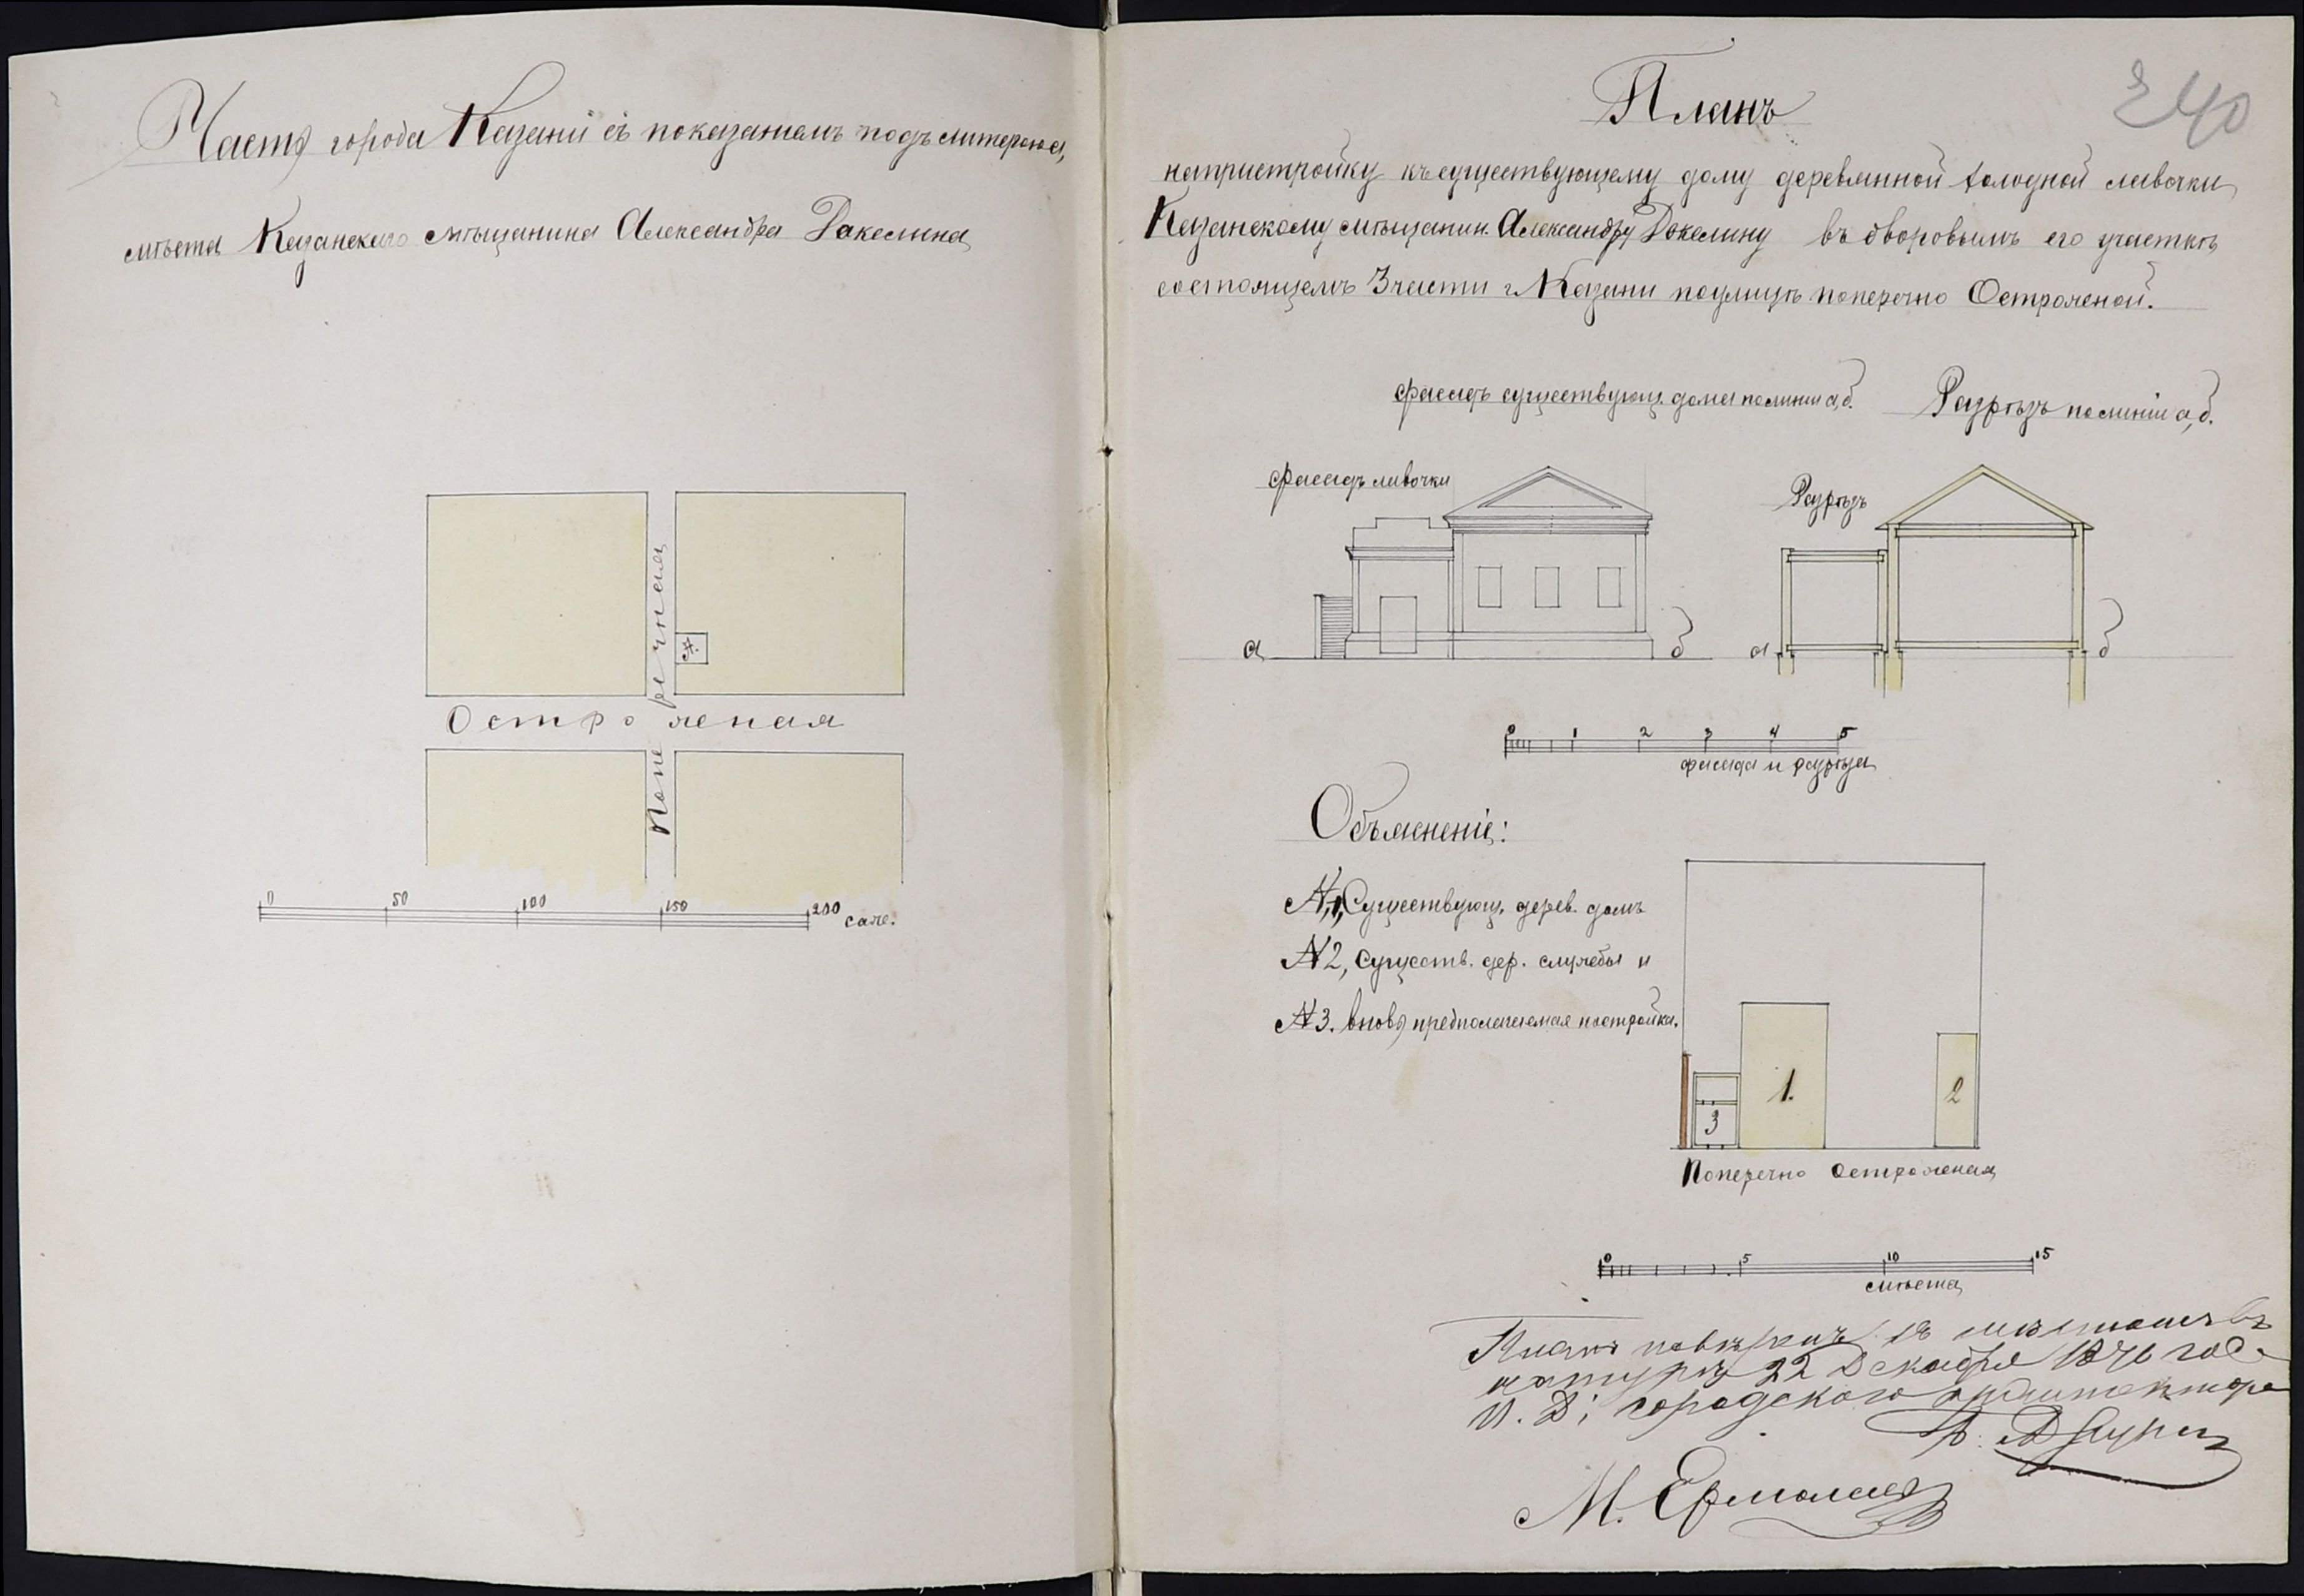 Часть города Казани съ показаніемъ подъ литерою а,
мѣста Казанскаго мѣщанина Александра Рокелина
Попе речная
А.
Остро жная
0 50 100 150 200 саж.
240
Планъ
на пристройку къ существующему дому деревянной холодной лавочки
Казанскому мѣщанин. Александру Рокелину въ дворовымъ его участкѣ
состоящемъ 3 части г Казани по улицѣ поперечно Острожной.
Фасадъ существующ. дома по линіи а,б. Разрѣзъ по линіи а,б.
Фасадъ лавочки
Разрѣзъ
а б
а б
0 1 2 3 4 5
фасада и разрѣза
Объясненіе:
N,1, Существующ. дерев. домъ
N 2, Существ. дер. службы и
N 3. вновь предполагаемая постройка.
1.
2
3
Поперечно Острожная
0 5 10 15
мѣста
Планъ повѣренъ съ мѣстомъ въ
натурѣ 22 Декабря 1876 года
И. Д; городского архитектора
М. Ермолаев